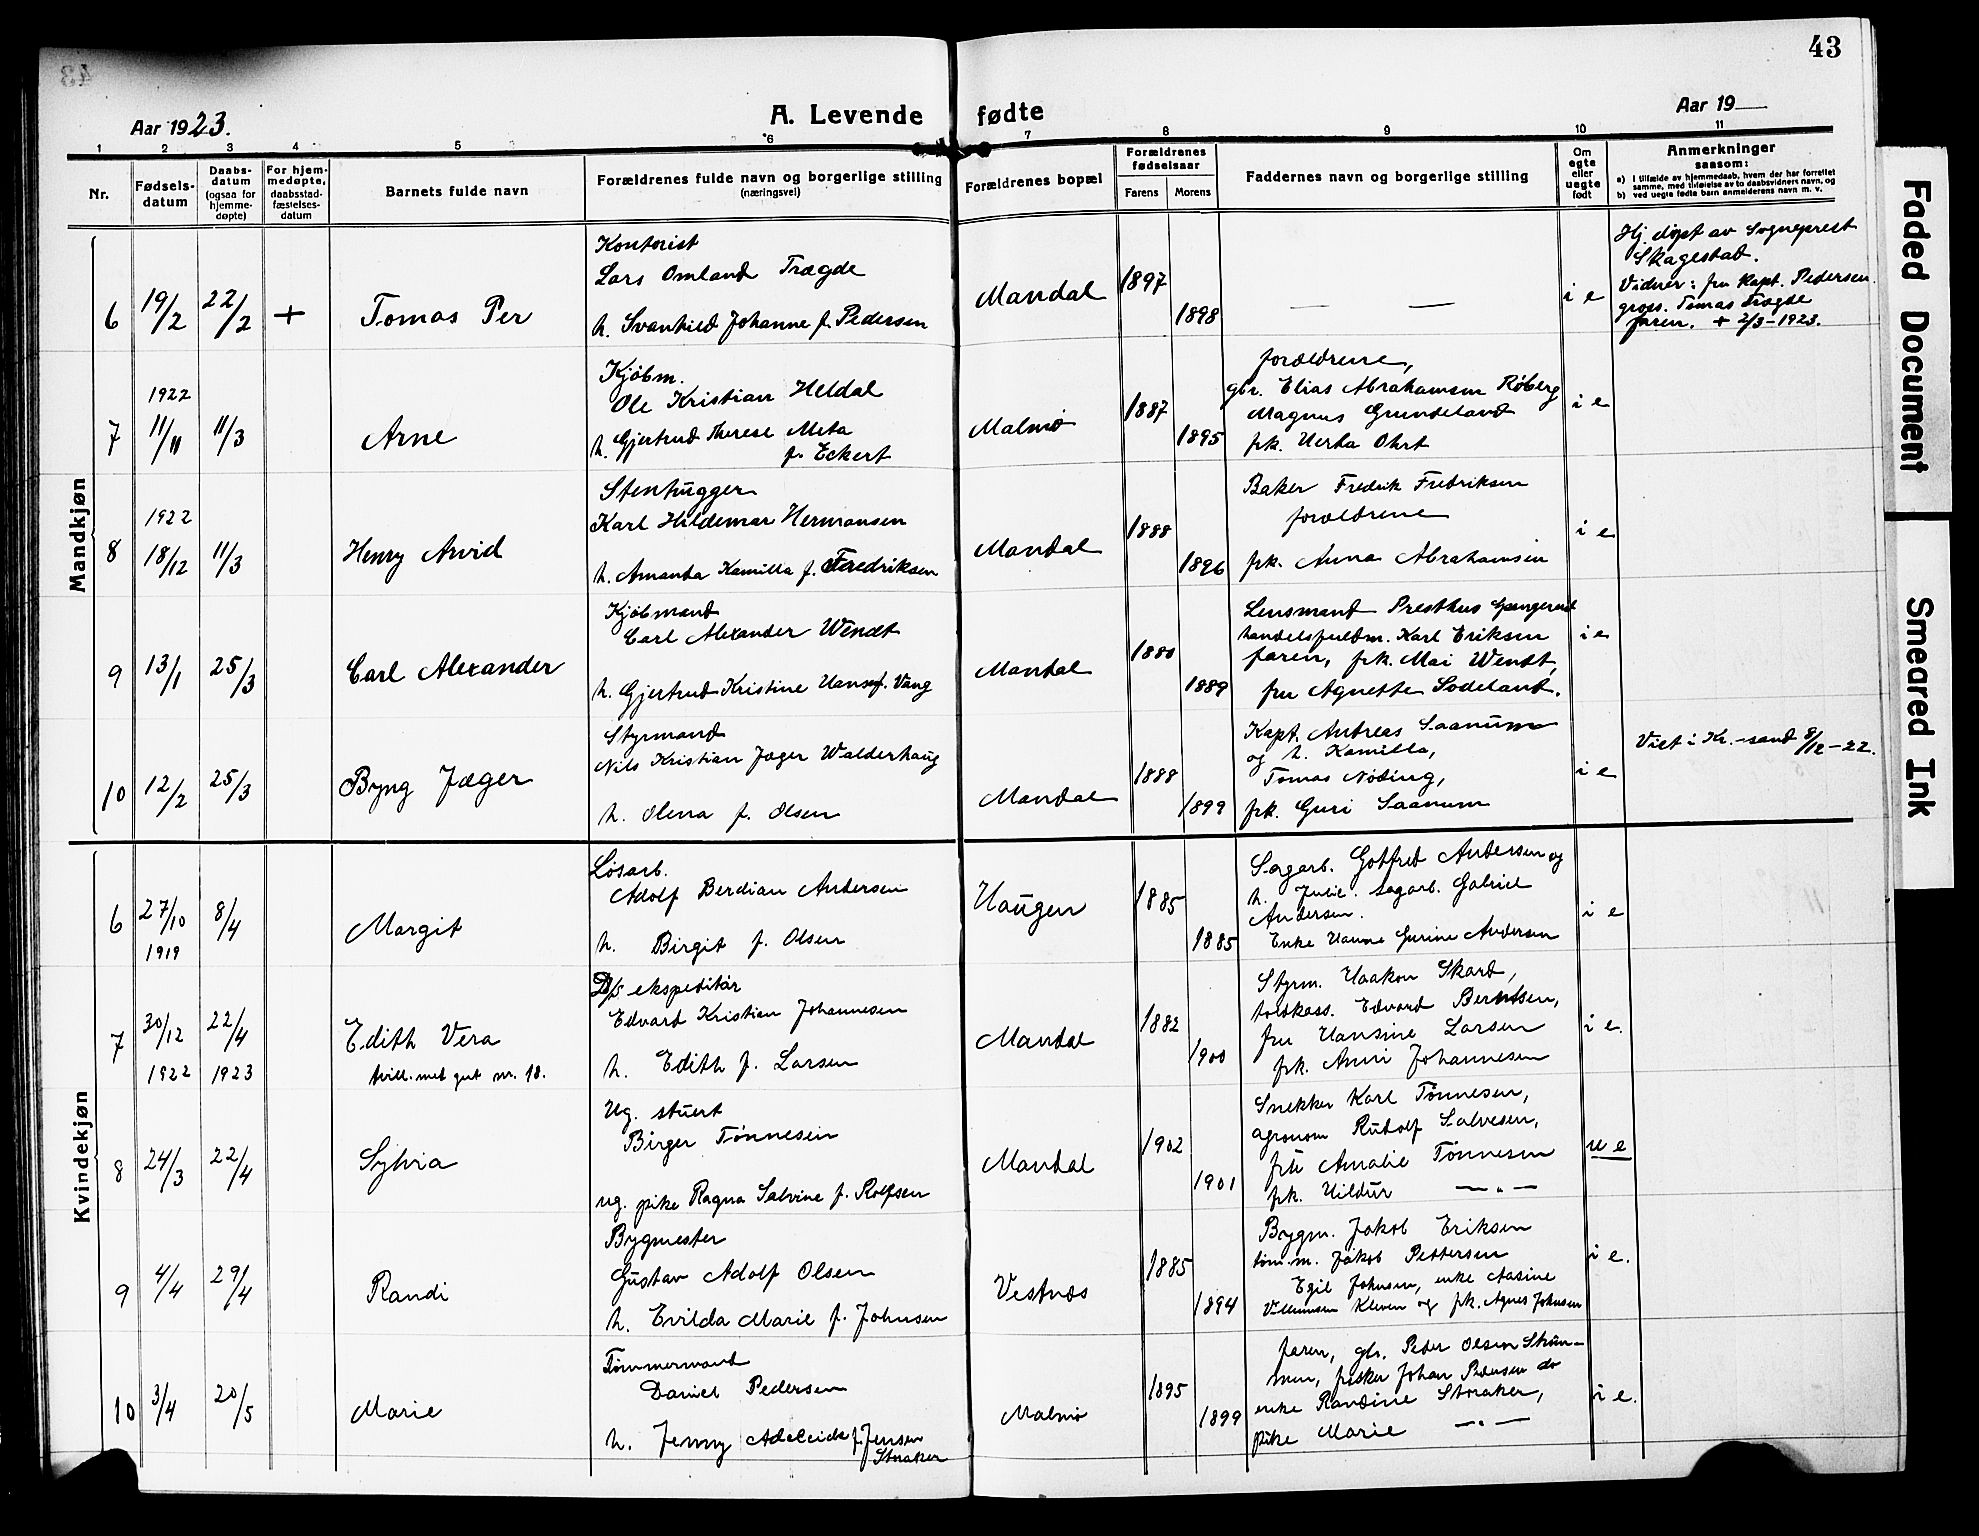 43
Aar 1923.
A. Levende fødte
Aar 19
1 2 3 4 5 6 7 8 9 10 11
Nr.
Fødsels-
datum
Daabs-
datum
(ogsaa for
hjemme-
døpte)
For hjem-
medøpte,
daabsstad-
fæstelses-
datum
Barnets fulde navn
Forældrenes fulde navn og borgerlige stilling
(næringsvei)
Forældrenes bopæl
Forældrenes
fødselsaar
Farens Morens
Faddernes navn og borgerlige stilling
Om
egte
eller
uegte
født
Anmerkninger
saasom:
a) I tilfælde av hjemmedaab, hvem der har forrettet
samme, med tilføielse av to daabsvidners navn, og
b) ved uegte fødte barn anmelderens navn m. v.
Mandkjøn
6 19/2 22/2 + Tomas Per
Kontorist
Lars Omland Trægde
h. Svanhild Johanne f. Pedersen
Mandal 1897 1898
— —
i e
Hj. døpt av Sogneprest
Skagestad.
Vidner: fru kapt. Pedersen
gross. Tomas Trægde
faren. + 2/3-1923.
7 1922 11/11 11/3 Arne
Kjøbm.
Ole Kristian Heldal
h. Gjertrud Therese Meta
f. Eckert
Malmø 1887 1895
forældrene,
gbr. Elias Abrahamsen Røberg
Magnus Grundeland
frk. Herta Ohrt
i e
8 1922 18/12 11/3 Henry Arvid
Stenhugger
Karl Hildemar Hermansen
h. Amanda Kamilla f. Fredriksen
Mandal 1888 1896
Baker Fredrik Fredriksen
forældrene
frk. Anna Abrahamsen
i e
9 13/1 25/3 Carl Alexander
Kjøbmand
Carl Alexander Wendt
h. Gjertrud Kristine Hansf. Vang
Mandal 1880 1889
Lensmand Presthus
handelsfuldm. Karl Eriksen
faren, frk. Mai Wendt,
fru Agnette Sodeland.
i e
10 12/2 25/3 Byng Jæger
Styrmand
Nils Kristian Jæger Walderhaug
h. Olena f. Olsen
Mandal 1888 1899
Kapt. Andreas Saanum
og h. Kamilla,
Tomas Nøding,
frk. Guri Saanum
i e
Viet i Kr.-sand 8/12-22.
Kvindekjøn
6 27/10 1919 8/4 Margit
Løsarb.
Adolf Berdian Andersen
h. Birgit f. Olsen
Haugen 1885 1885
Sagarb. Gotfred Andersen og
h. Julie. sagarb. Gabriel
Andersen.
Enke Hanne Gurine Andersen
i e
7 30/12 1922 22/4 1923 Edith Vera
tvill. med gut nr. 18.
D/S ekspeditør
Edvard Kristian Johannesen
h. Edith f. Larsen
Mandal 1882 1900
Styrm. Haakon Skard,
toldkass. Edvard Berntsen,
fru Hansine Larsen
frk. Anni Johannesen
i e.
8 24/3 22/4 Sylvia
Ug. stuert
Birger Tønnesen
ug. pike Ragna Salvine f. Rolfsen
Mandal 1902 1901
Snekker Karl Tønnesen,
agronom Rudolf Salvesen,
fru Amalie Tønnesen
frk. Hildur —"—
u e
9 4/4 29/4 Randi
Bygmester
Gustav Adolf Olsen
h. Evilda Marie f. Johnsen
Vestnes 1885 1894
Bygm. Jakob Eriksen
tøm.m. Jakob Pettersen
Egil Johnsen, enke Aasine
Villumsen Kleven og frk. Agnes Johnsen
i e.
10 3/4 20/5 Marie
Tømmermand
Daniel Pedersen
h. Jenny Adeleide f. Jensen
Storaker
Malmø 1895 1899
faren, gbr. Peder Olsen Skin-
men, fisker Johan Pedersen do
enke Randine Storaker,
pike Marie —"—
i e.
Faded Document
Smeared Ink